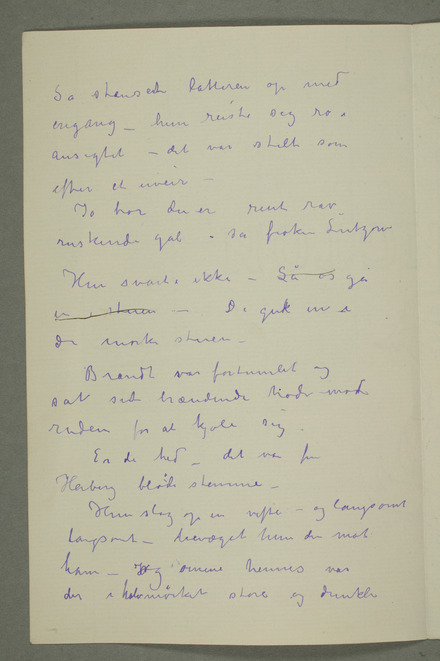 Så stansede latteren op med
engang – hun reiste sig rød i
ansigtet – det var stilt som
efter et uveir –
Jo hør du er rent rav_
ruskende gal – sa frøken Lützow
Hun svarte ikke – Så os gå
in i stuen – De gik in i
de mørke stuen –
Brandt var fortumlet og
sat set brændende hode mod
ruden for at kjøle sig.
Er de hed – det var fru
Heiberg bløde stemme –
Hun slog op en vifte – og langsomt
langsomt – bevæget hun den mot
ham – og øinene hennes var
der i halvmørket store og dunkle